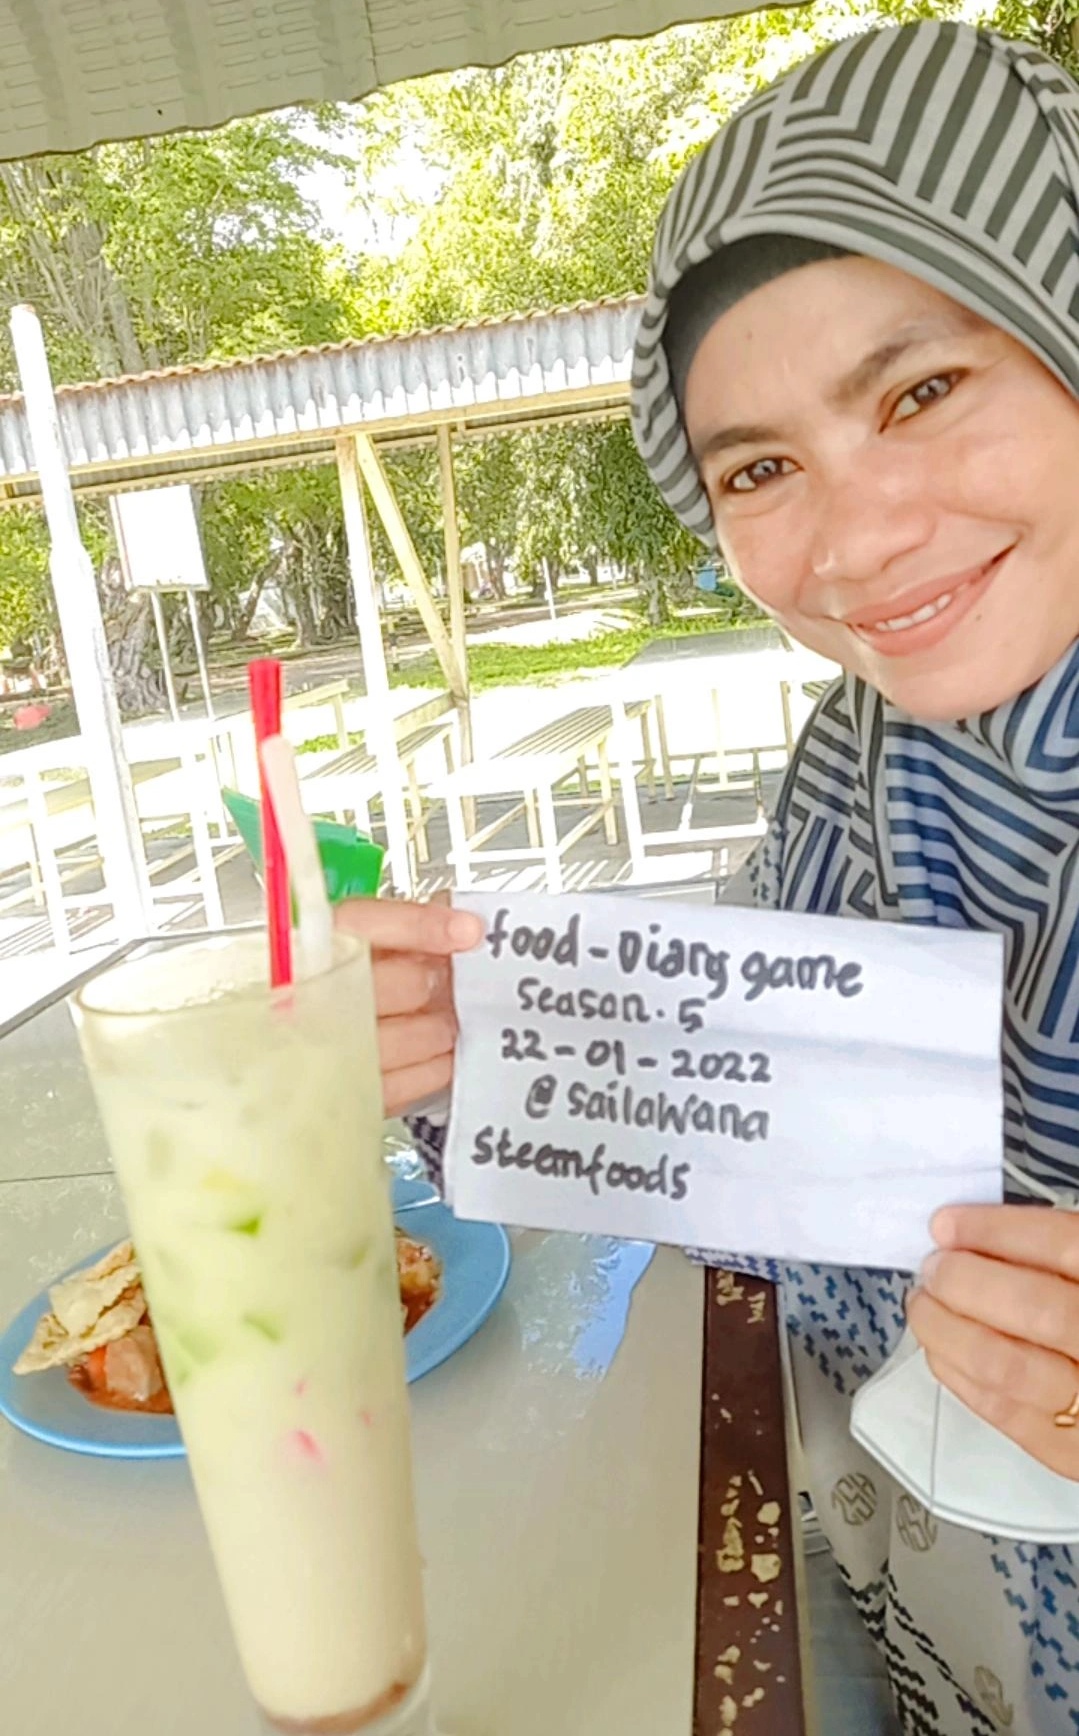 food - Diary game
Season. 5
22-01-2022
@ Sailawana
Steemfoods